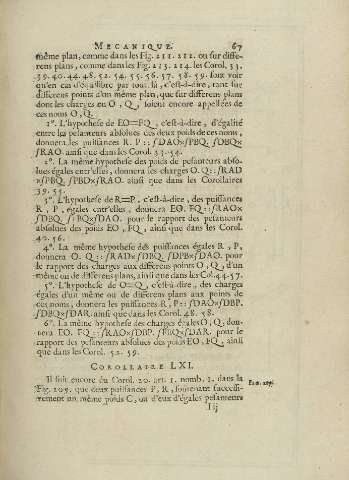 MECANIQUE. 67
même plan, comme dans les Fig. 211. 212. ou sur diffe-
rens plans, comme dans les Fig. 213. 214. les Corol. 33.
39. 40. 44. 48. 52. 54. 55. 56. 57. 58. 59. font voir
qu'en cas d'équilibre par tout là, c'est-à-dire, tant sur
differens points d'un même plan, que sur differens plans
dont les charges en O, Q, soient encore appellées de
ces noms O, Q.
1°. L'hypothese de EO=FQ, c'est-à-dire, d'égalité
entre les pesanteurs absolues des deux poids de ces noms,
donnera les puissances R. P :: ſDAO×ſPBQ. ſDBQ×
ſRAO. ainsi que dans les Corol. 33. 54.
2°. La même hypothese des poids de pesanteurs abso-
lues égales entr'elles, donnera les charges O. Q :: ſRAD
×ſPBQ. ſPBD×ſRAO. ainsi que dans les Corollaires
39. 55.
3°. L'hypothese de R=P, c'est-à-dire, des puissances
R, P, égales entr'elles, donnera EO. FQ :: ſRAO×
ſDBQ. ſPBQ×ſDAO. pour le rapport des pesanteurs
absolues des poids EO, FQ, ainsi que dans les Corol.
40. 56.
4°. La même hypothese des puissances égales R, P,
donnera O. Q :: ſRAD×ſDBQ. ſDPB×ſDAO. pour
le rapport des charges aux differens points O, Q, d'un
même ou de differens plans, ainsi que dans les Co. 44. 57.
5°. L'hypothese de O=Q, c'est-à-dire, des charges
égales d'un même ou de differens plans aux points de
ces noms, donnera les puissances R, P :: ſDAO×ſDBP.
ſDBQ×ſDAR. ainsi que dans les Corol. 48. 58.
6°. La même hypothese des charges égales O, Q, don-
nera EO. FQ :: ſRAO×ſDBP. ſPBQ×ſDAR. pour le
rapport des pesanteurs absolues des poids EO, FQ, ainsi
que dans les Corol. 52. 59.
COROLLAIRE LXI.
Il suit encore du Corol. 20. art. 1. nomb. 1. dans la
Fig. 209. que deux puissances P, R, soûtenant successi-
vement un même poids C, ou d'eux d'égales pesanteurs
I ij